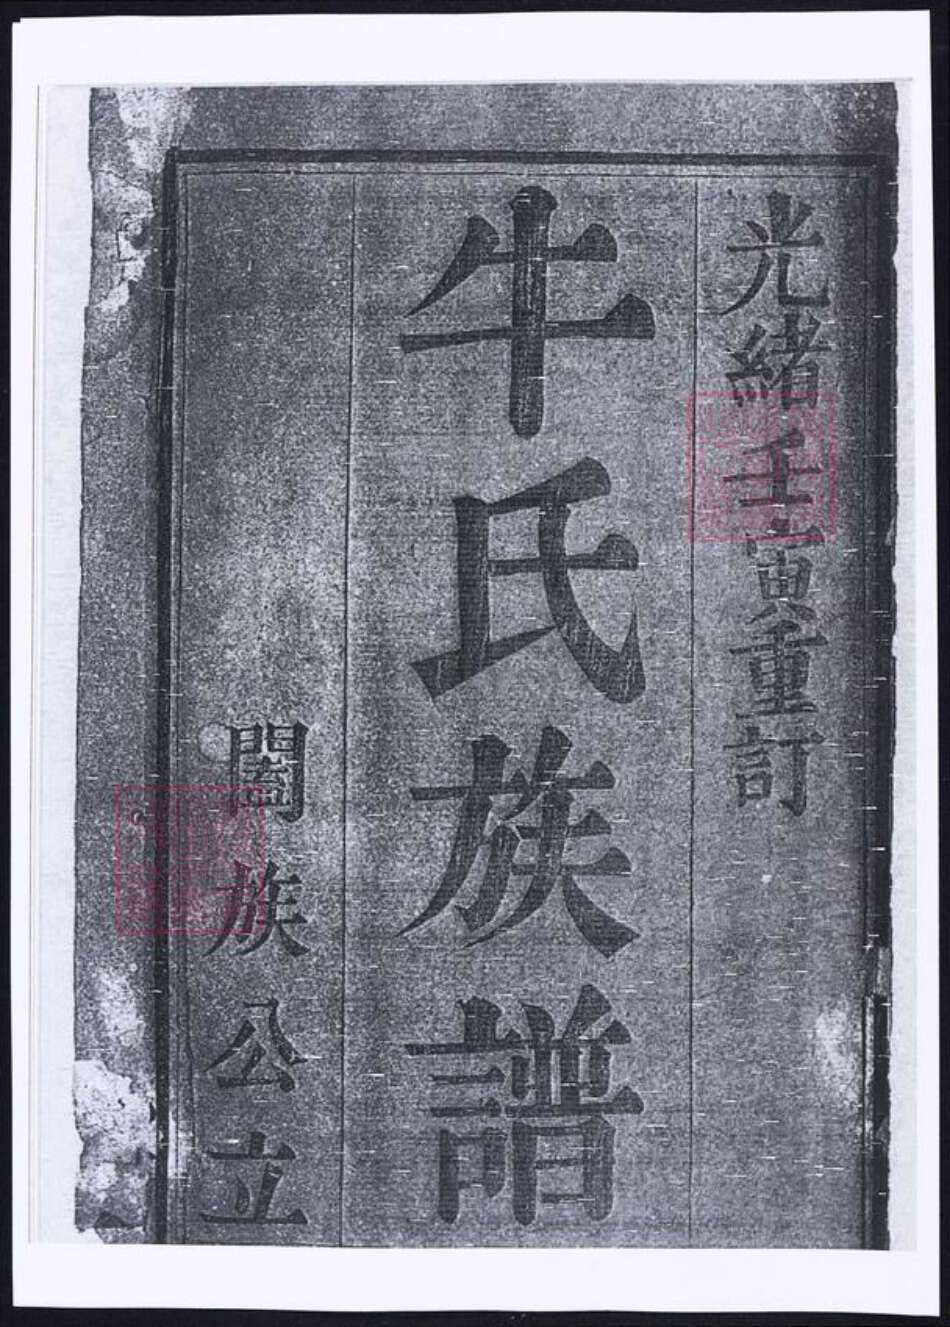 光緒壬寅重訂
牛氏族譜
闔族公立